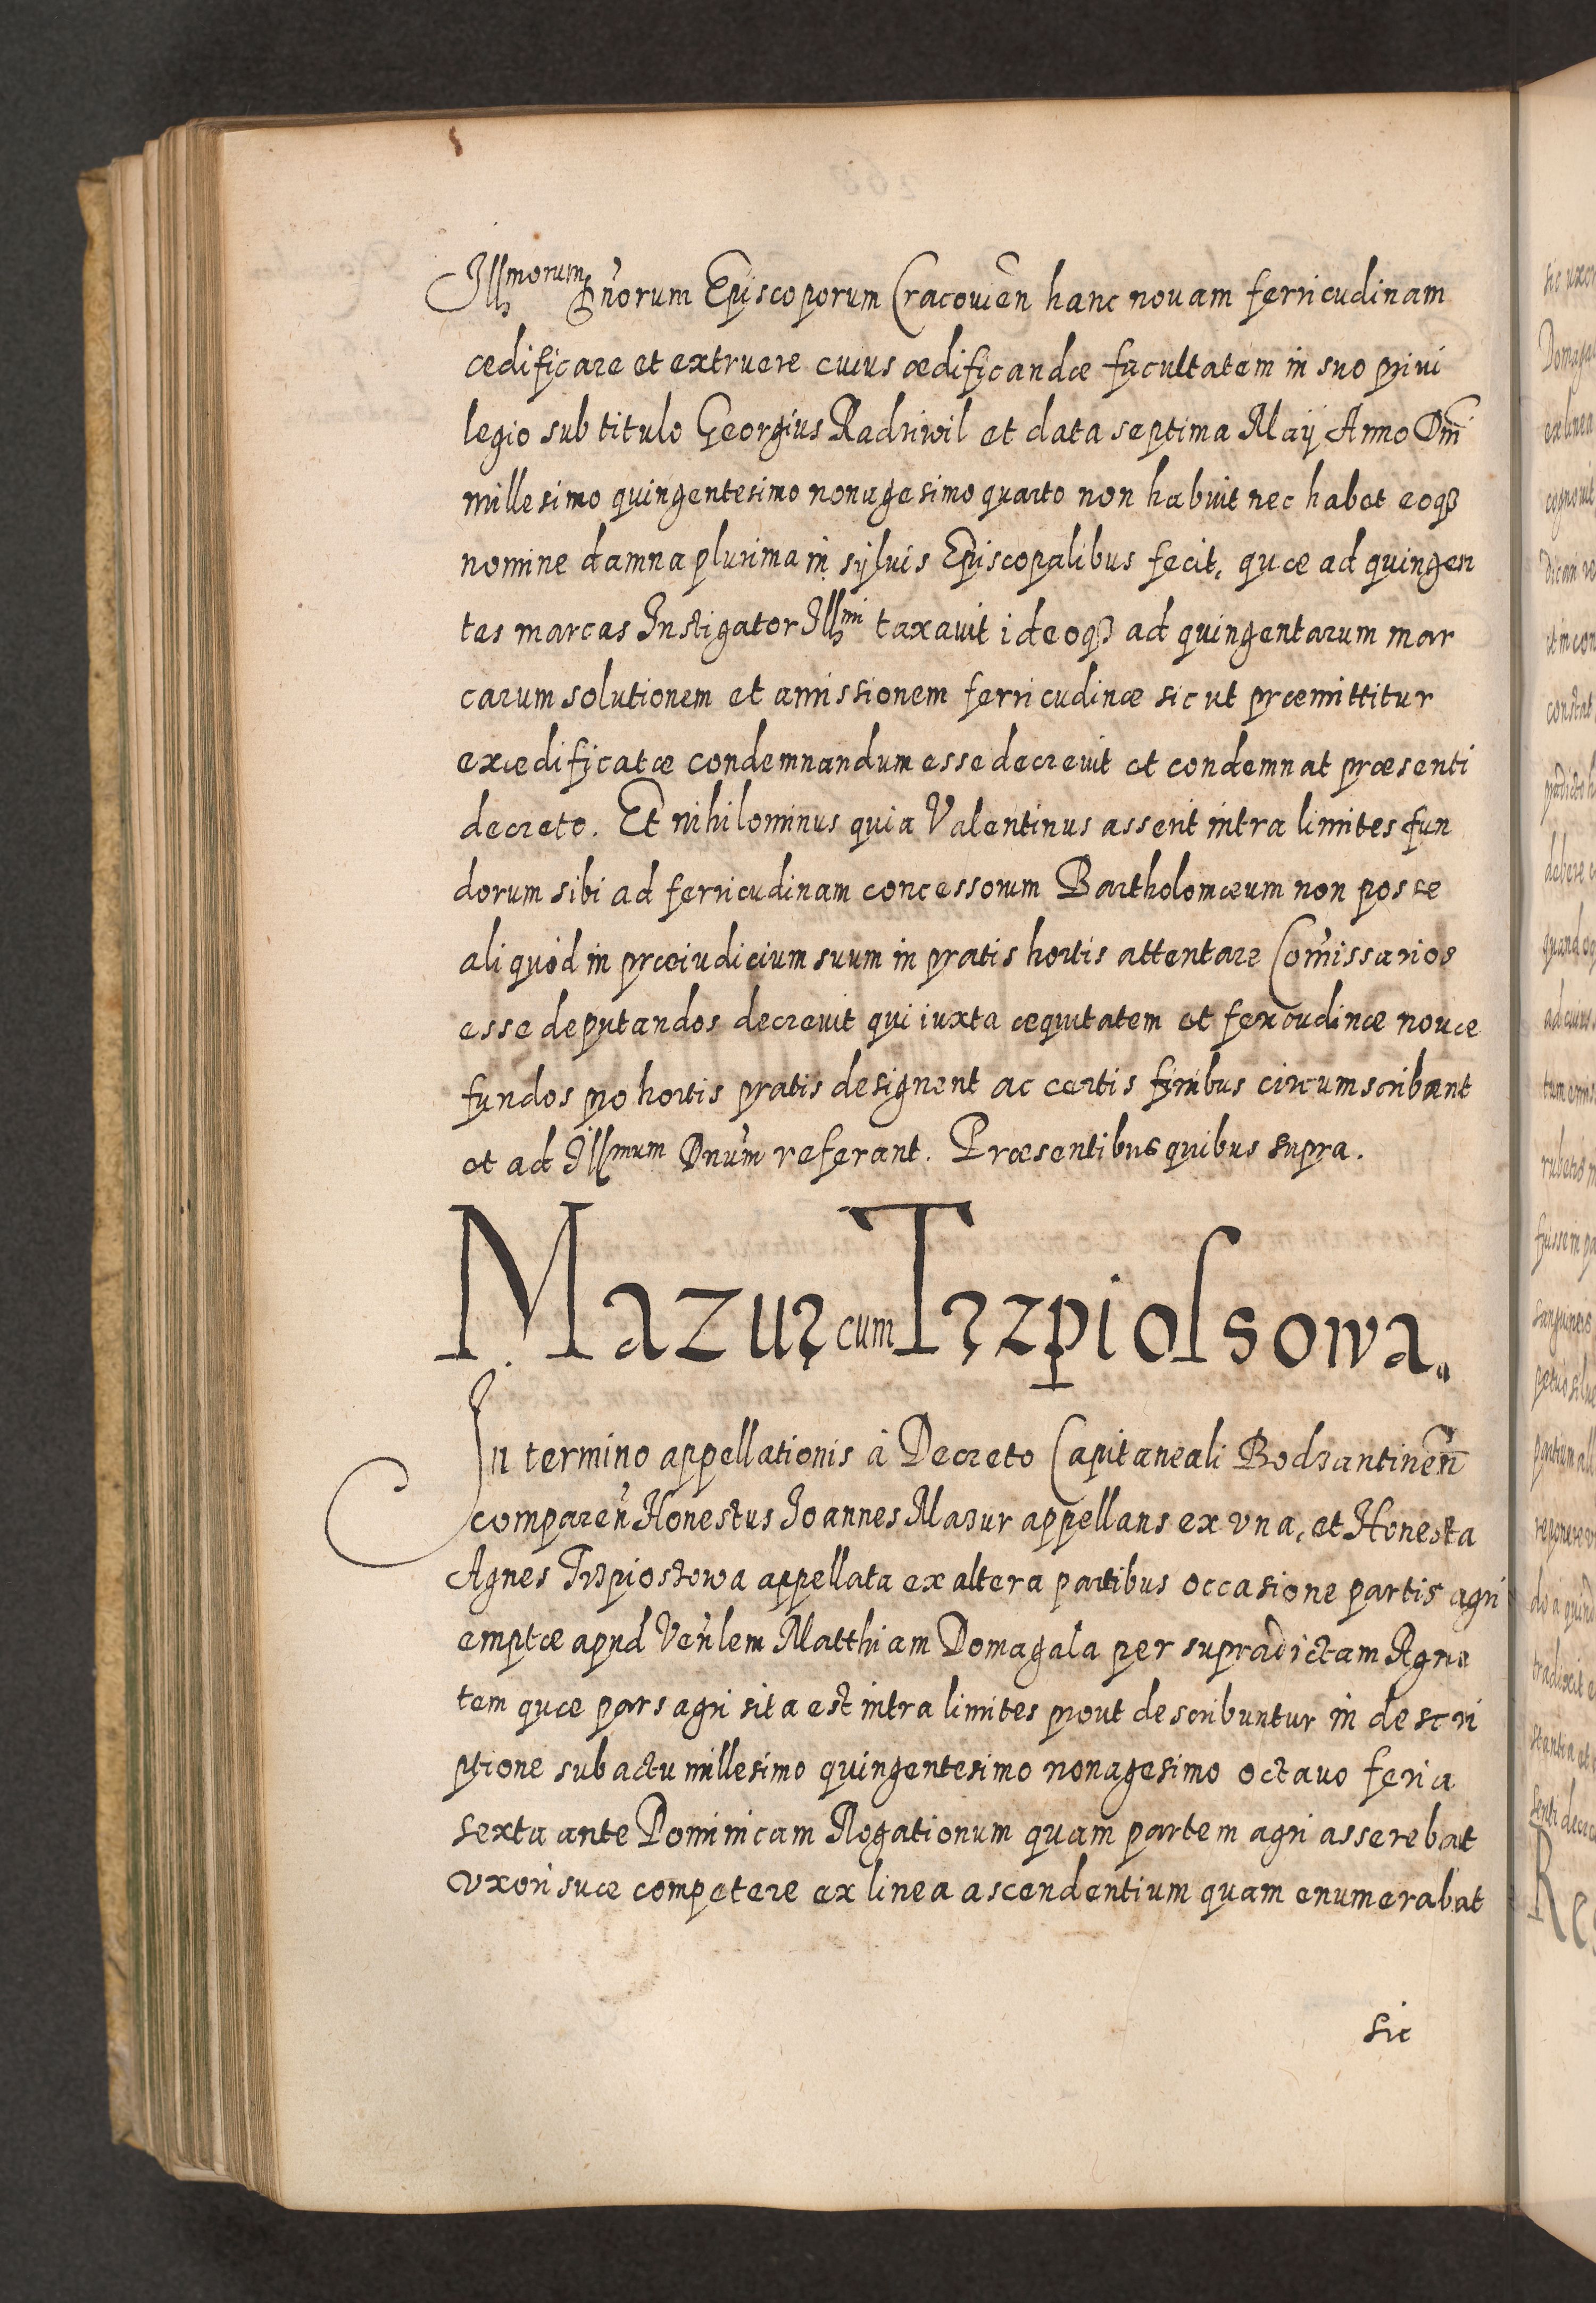 Illmorum Dnorum Episcoporum Cracouien hanc nouam ferricudinam
ædificare et extruere cuius ædificandæ facultatem in suo priui
legio sub titulo Georgius Radziwil et data septima Maij Anno Dni
millesimo quingentesimo nonagesimo quarto non habuit nec habet eoqз
nomine damna plurima in syluis Episcopalibus fecit, quæ ad quingen
tas marcas Instigator Illmi taxauit ideoqз ad quingentarum mar
carum solutionem et amissionem ferricudinæ sic ut præmittitur
exædificatæ condemnandum esse decreuit et condemnat præsenti
decreto. Et nihilominus quia Valentinus asserit intra limites fun
dorum sibi ad ferricudinam concessorum Bartholomæum non posse
aliquod in præiudicium suum in pratis hortis attentare Comissarios
esse deputandos decreuit qui iuxta æquitatem et ferricudinæ nouæ
fundos pro hortis pratis designent ac certis finibus circumscribant
et ad Illmum Dnum referant. Præsentibus quibus supra.
Mazur cum Trzpiossowa.
In termino appellationis à Decreto Capitaneali Bodzantinen
comparen Honestus Ioannes Mazur appellans ex vna, et Honesta
Agnes Trzpiostowa appellata ex altera partibus occasione partis agri
emptæ apud Venlem Matthiam Domagala per supradictam Agne
tem quæ pars agri sita est intra limites prout describuntur in descri
ptione sub actu millesimo quingentesimo nonagesimo octauo feria
sexta ante Dominicam Rogationum quam partem agri asserebat
vxori suæ competere ex linea ascendentium quam enumerabat
sic